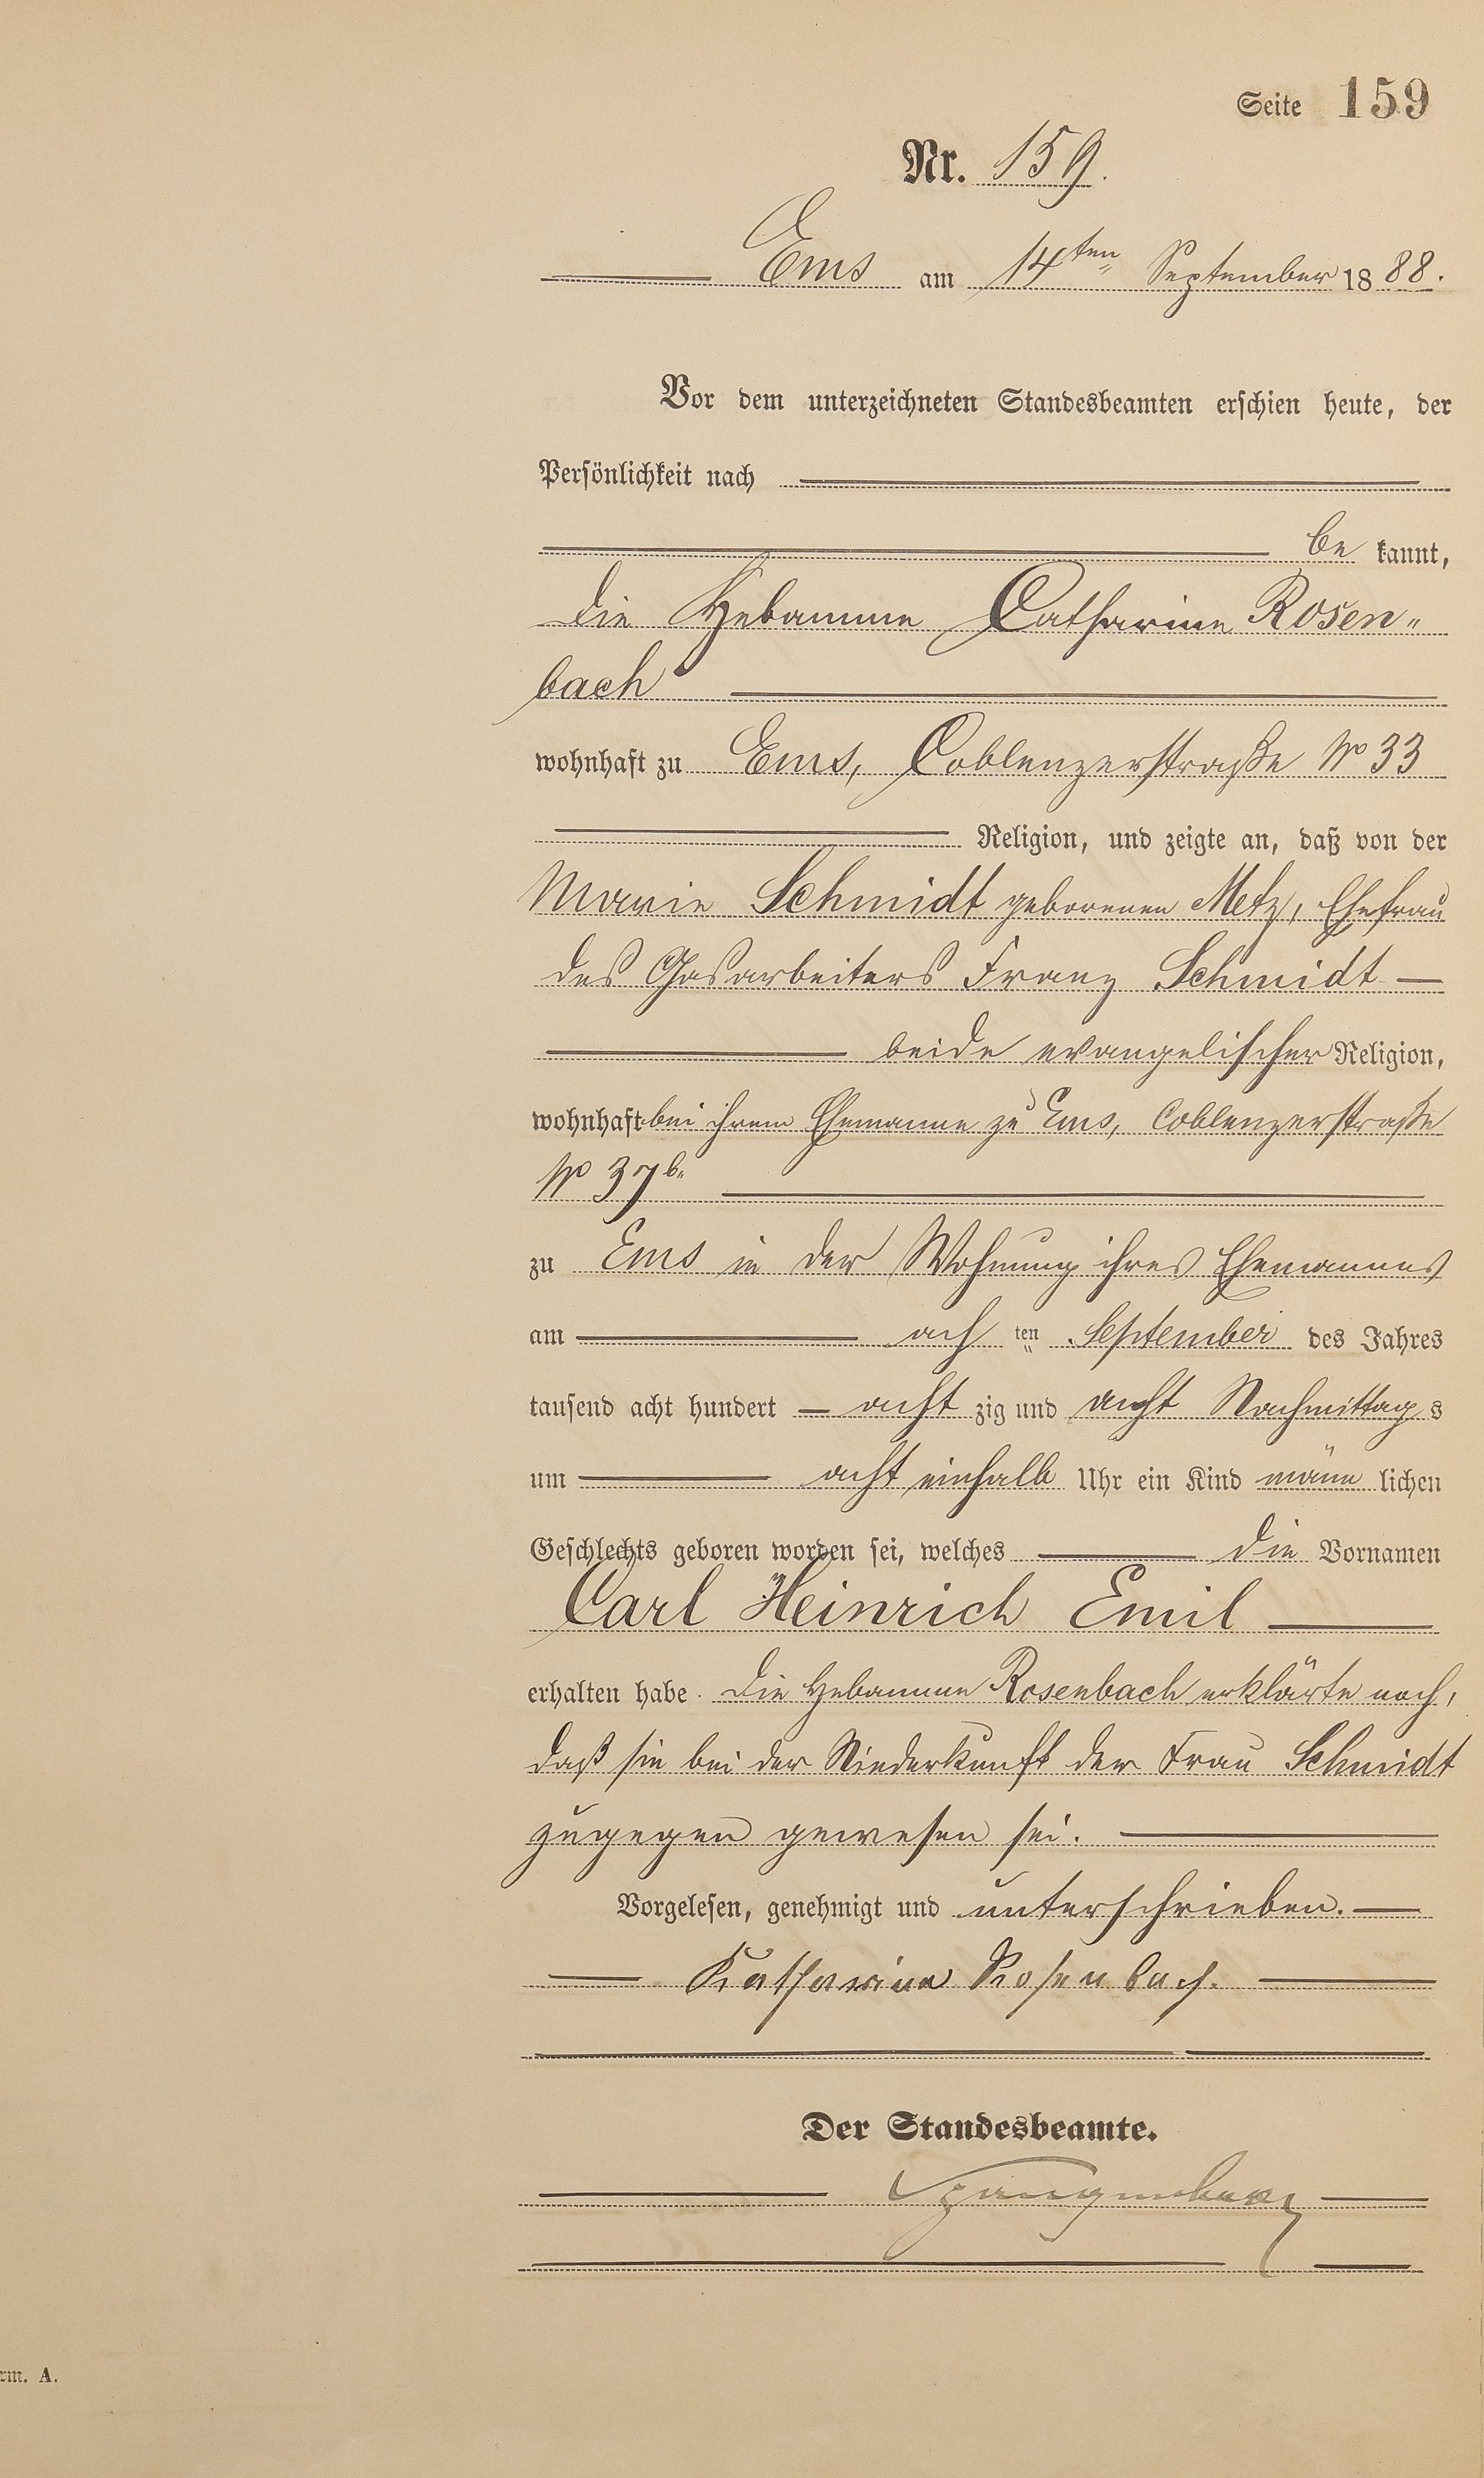 Seite 159
Nr. 159.
Ems am 14ten September 1888.
Vor dem unterzeichneten Standesbeamten erschien heute, der
Persönlichkeit nach
be kannt,
die Hebamme Catharine Rosen„
bach
wohnhaft zu Ems, Coblenzerstraße No 33
Religion, und zeigte an, daß von der
Marie Schmidt geborenen Metz, Ehefrau
des Gasarbeiters Franz Schmidt —
beide evangelischer Religion,
wohnhaft bei ihrem Ehemanne zu Ems, Coblenzerstraße
No 37b.
zu Ems in der Wohnung ihres Ehemannes
am ach ten September des Jahres
tausend acht hundert — acht zig und acht Nachmittag s
um acht einhalb Uhr ein Kind männ lichen
Geschlechts geboren worden sei, welches die Vornamen
Carl Heinrich Emil
erhalten habe. Die Hebamme Rosenbach erklärte noch,
daß sie bei der Niederkunft der Frau Schmidt
zugegen gewesen sei.
Vorgelesen, genehmigt und unterschrieben. —
Katharina Rosenbach.
Der Standesbeamte.
rm. A.